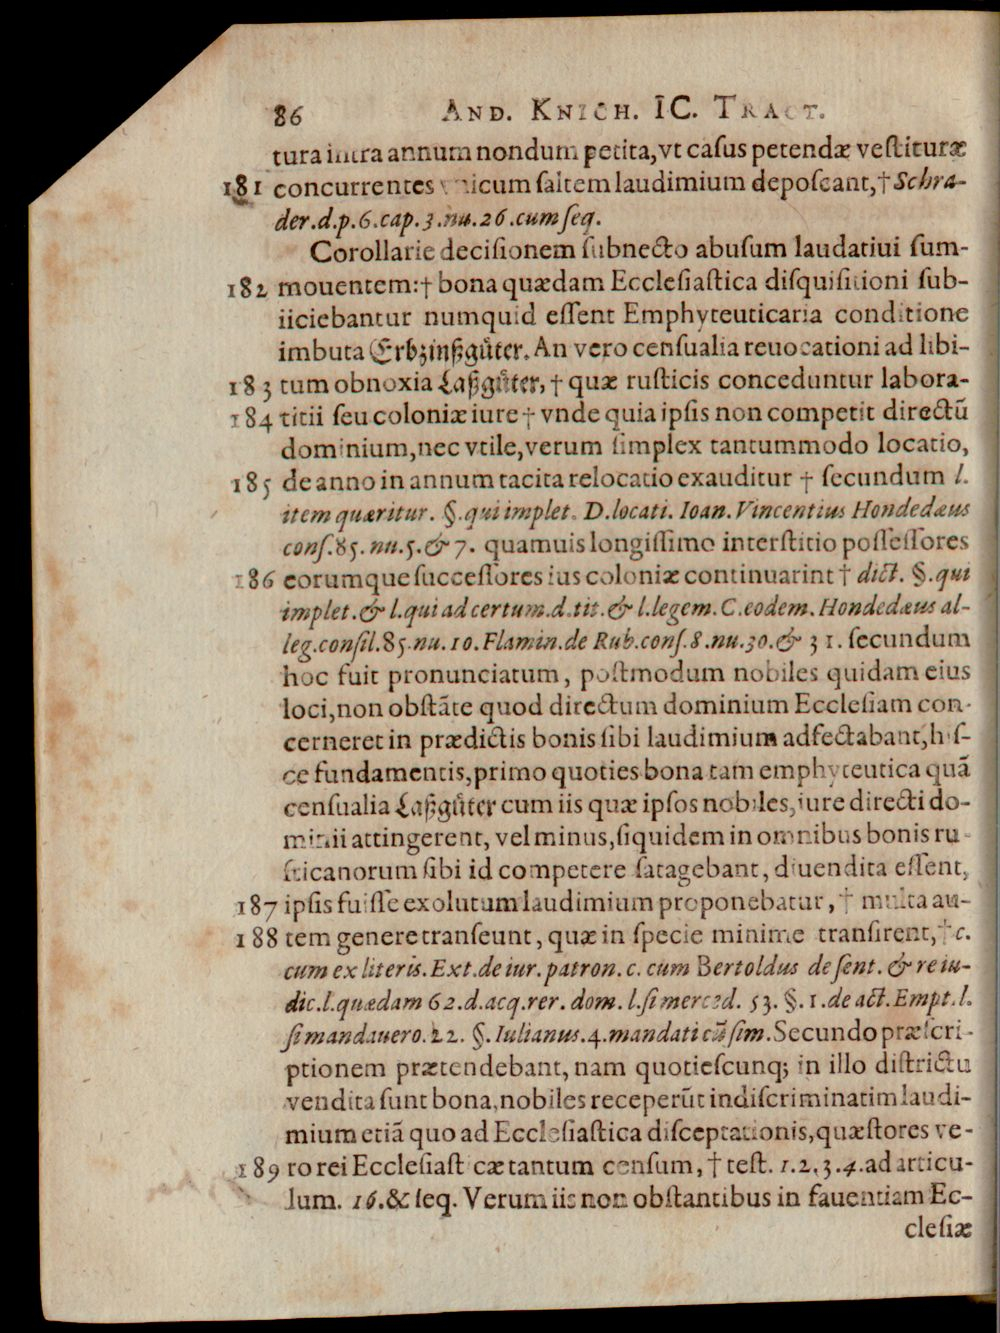 86 AND. KNICH. IC. TRACT.
tura intra annum nondum petita, vt casus petendæ vestituræ
181 concurrentes vnicum saltem laudimium deposcant, † Schra-
der. d. p. 6. cap. 3. nu. 26. cum seq.
Corollarie decisionem subnecto abusum laudatiui sum-
182 mouentem: † bona quædam Ecclesiastica disquisitioni sub-
iiciebantur numquid essent Emphyteuticaria conditione
imbuta Erbzinßgůter. An vero censualia reuocationi ad libi-
183 tum obnoxia Laßgůter, † quæ rusticis conceduntur labora-
184 titii seu coloniæ iure † vnde quia ipsis non competit directũ
dominium, nec vtile, verum simplex tantummodo locatio,
185 de anno in annum tacita relocatio exauditur † secundum l.
item quæritur. §. qui implet. D. locati. Ioan. Vincentius Hondedæus
cons. 85. nu. 5. & 7. quamuis longissimo interstitio possessores
186 eorumque successores ius coloniæ continuarint † dict. §. qui
implet. & l. qui ad certum. d. tit. & l. legem. C. eodem. Hondedæus al-
leg. consil. 85. nu. 10. Flamin. de Rub. cons. 8. nu. 30. & 31. secundum
hoc fuit pronunciatum, postmodum nobiles quidam eius
loci, non obstãte quod directum dominium Ecclesiam con-
cerneret in prædictis bonis sibi laudimium adfectabant, his-
ce fundamentis, primo quoties bona tam emphyteutica quã
censualia Laßgůter cum iis quæ ipsos nobiles, iure directi do-
minii attingerent, vel minus, siquidem in omnibus bonis ru-
sticanorum sibi id competere satagebant, diuendita essent,
187 ipsis fuisse exolutum laudimium proponebatur, † multa au-
188 tem genere transeunt, quæ in specie minime transirent, † c.
cum ex literis. Ext. de iur. patron. c. cum Bertoldus de sent. & re iu-
dic. l. quædam 62. d. acq. rer. dom. l. si merced. 53. §. 1. de act. Empt. l.
si mandauero. 22. §. Iulianus. 4. mandati cũ sim. Secundo præscri-
ptionem prætendebant, nam quotiescunq; in illo districtu
vendita sunt bona, nobiles receperũt indiscriminatim laudi-
mium etiã quo ad Ecclesiastica disceptationis, quæstores ve-
189 ro rei Ecclesiasticæ tantum censum, † test. 1. 2. 3. 4. ad articu-
lum. 16. & seq. Verum iis non obstantibus in fauentiam Ec-
clesiæ